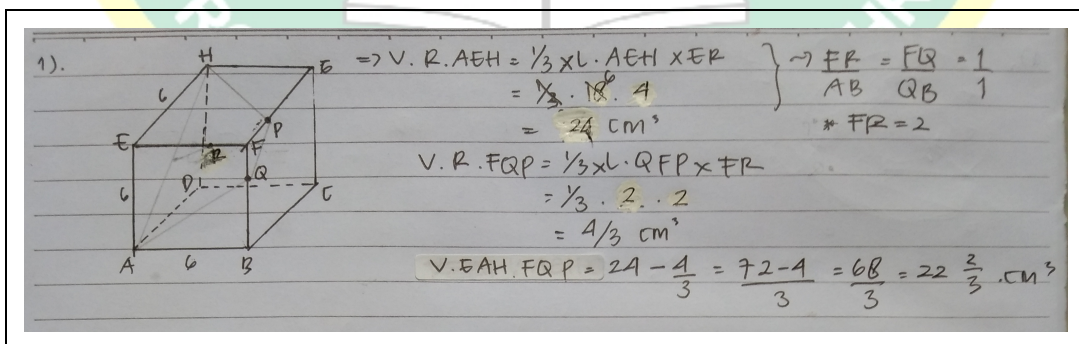 1).
H
G
6
E
F
P
R
Q
6
D
C
A
6
B
=> V. R. AEH = 1/3 x L. AEH x ER
= 1/3 . 18 6 . 4
= 24 cm³
V. R. FQP = 1/3 x L. QFP x FR
= 1/3 . 2 . . 2
= 4/3 cm³
V. EAH. FQP = 24 - 4/3 = 72-4/3 = 68/3 = 22 2/3 . cm³
} ~> FR/AB = FQ/QB = 1/1
* FR = 2